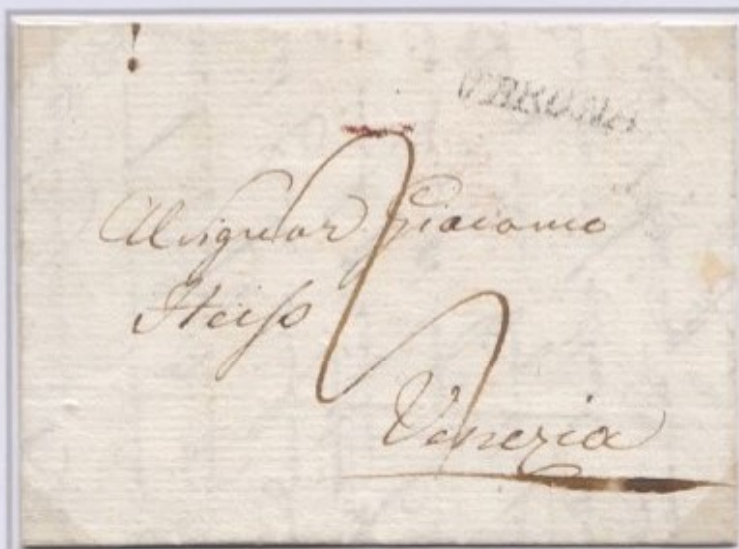 VERONA
Al Signor Giacomo
Heiss
Venezia